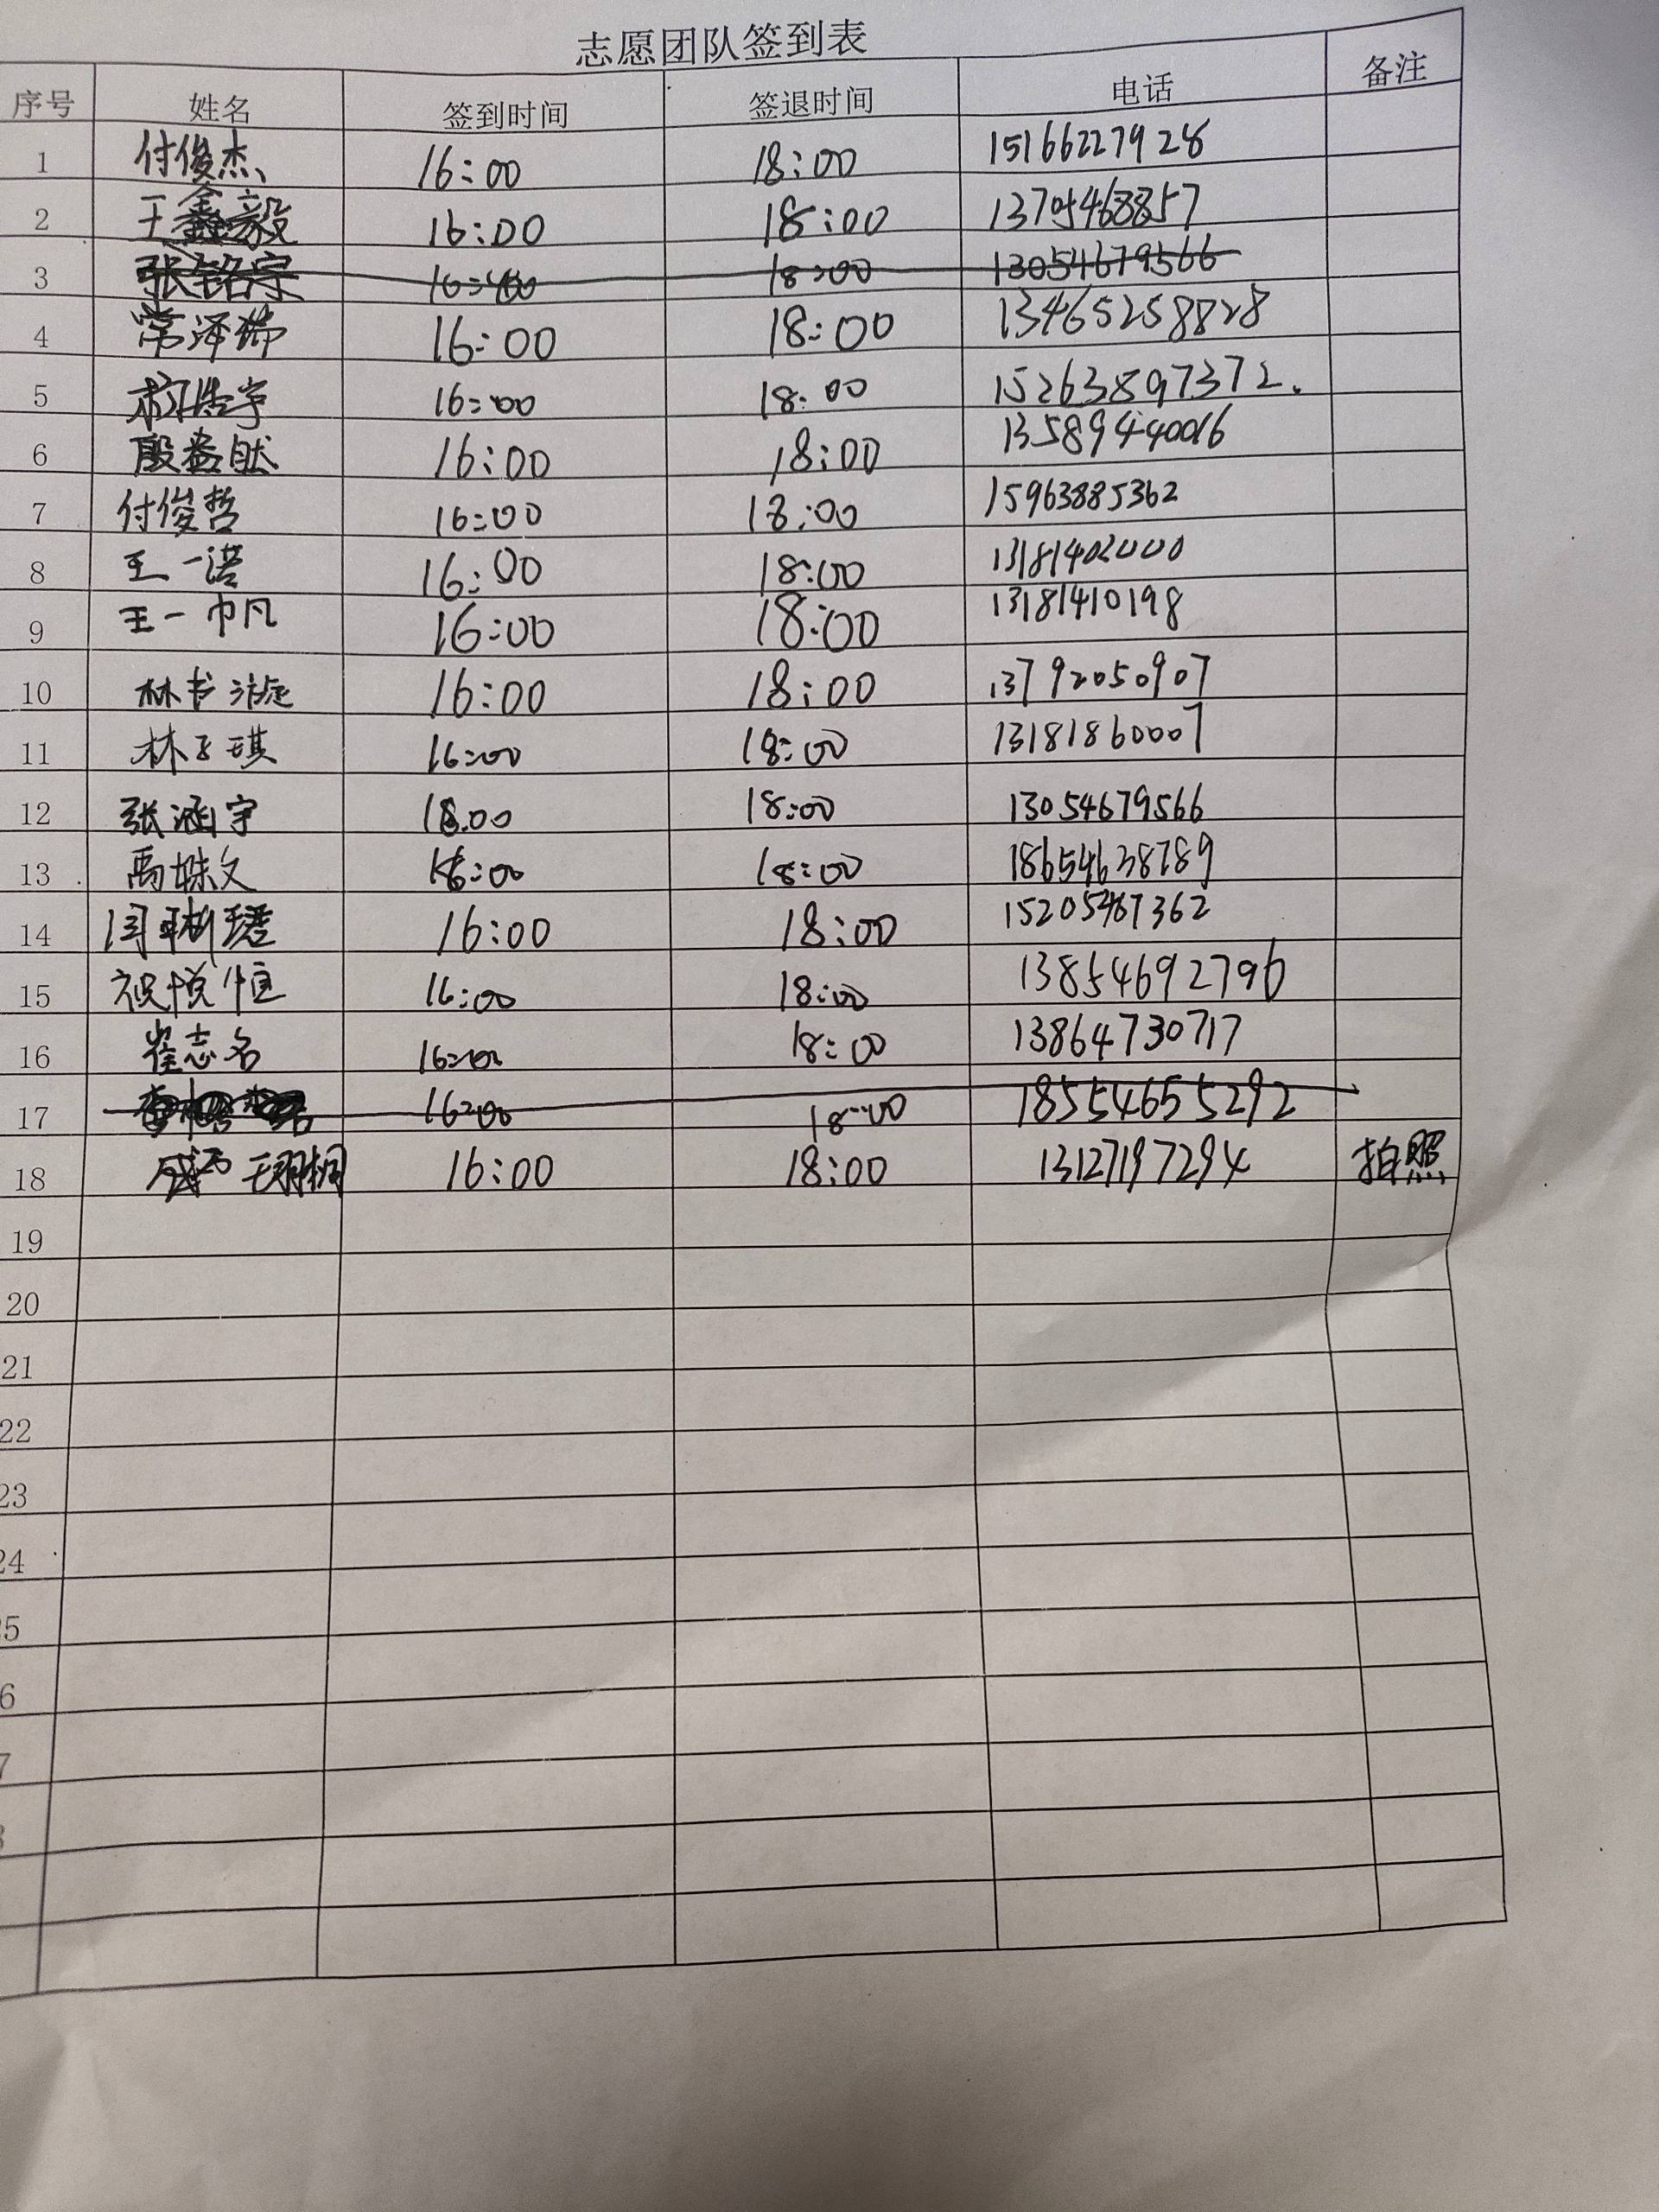 志愿团队签到表
序号 姓名 签到时间 签退时间 电话 备注
1 付俊杰 16:00 18:00 15166227928
2 王鑫毅 16:00 18:00 13705468857
3 张铭宇 18:00 13054679566
4 常泽 16:00 18:00 13465258828
5 浩宇 16:00 18:00 15263897372.
6 殷盎自然 16:00 18:00
7 付俊哲 16:00 18:00 15963885362
8 王一诺 16:00 18:00 13181402000
9 王一帆 16:00 18:00 13181410198
10 林书 16:00 18:00 13792050907
11 林子琪 16:00 18:00 13181860007
12 张涵宇 18:00 13054679566
13 禹姝文 16:00 18:00 18654638789
14 闫 珺 16:00 18:00 15205467362
15 祝悦恒 16:00 18:00 13854692796
16 崔志名 16:00 18:00 13864730717
17 16:00 18:00 18554655292
18 16:00 18:00 13127197294 拍照
19
20
21
22
23
24